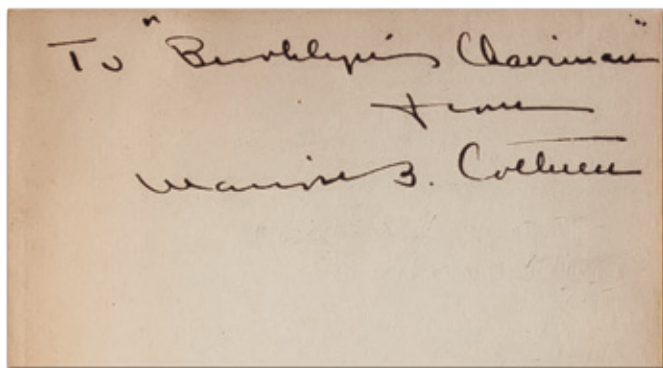 To "Brooklyn's Chairman"
from
Marion B. Cothren